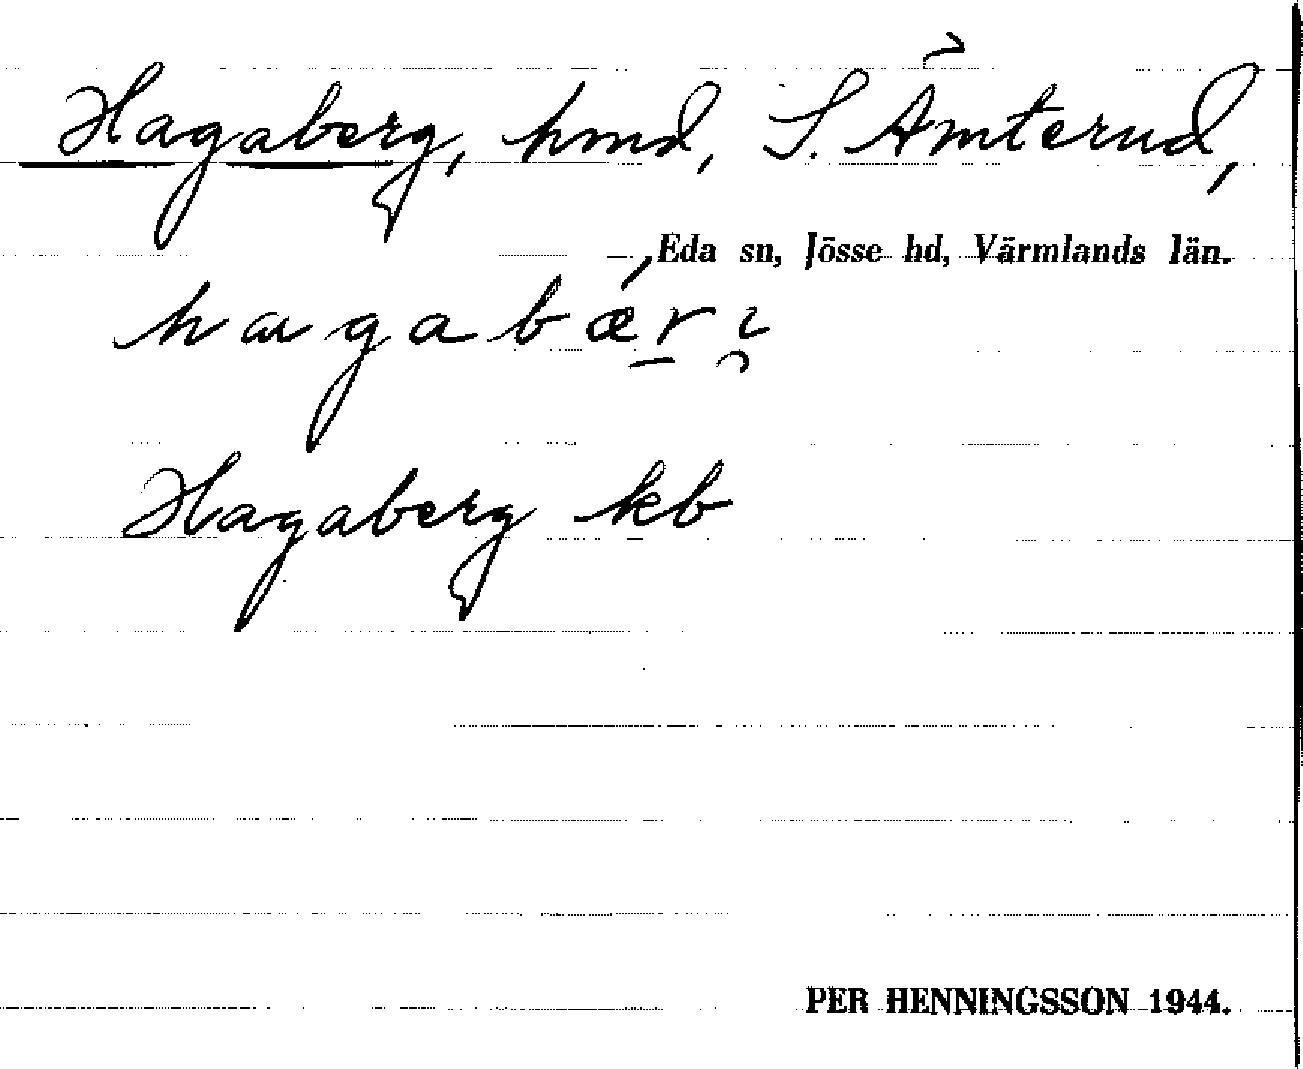 Hagaberg, hmd, S. Ämterud,
Eda sn, Jösse hd, Värmlands län.
Hagaberg kb
PER HENNINGSSON 1944.